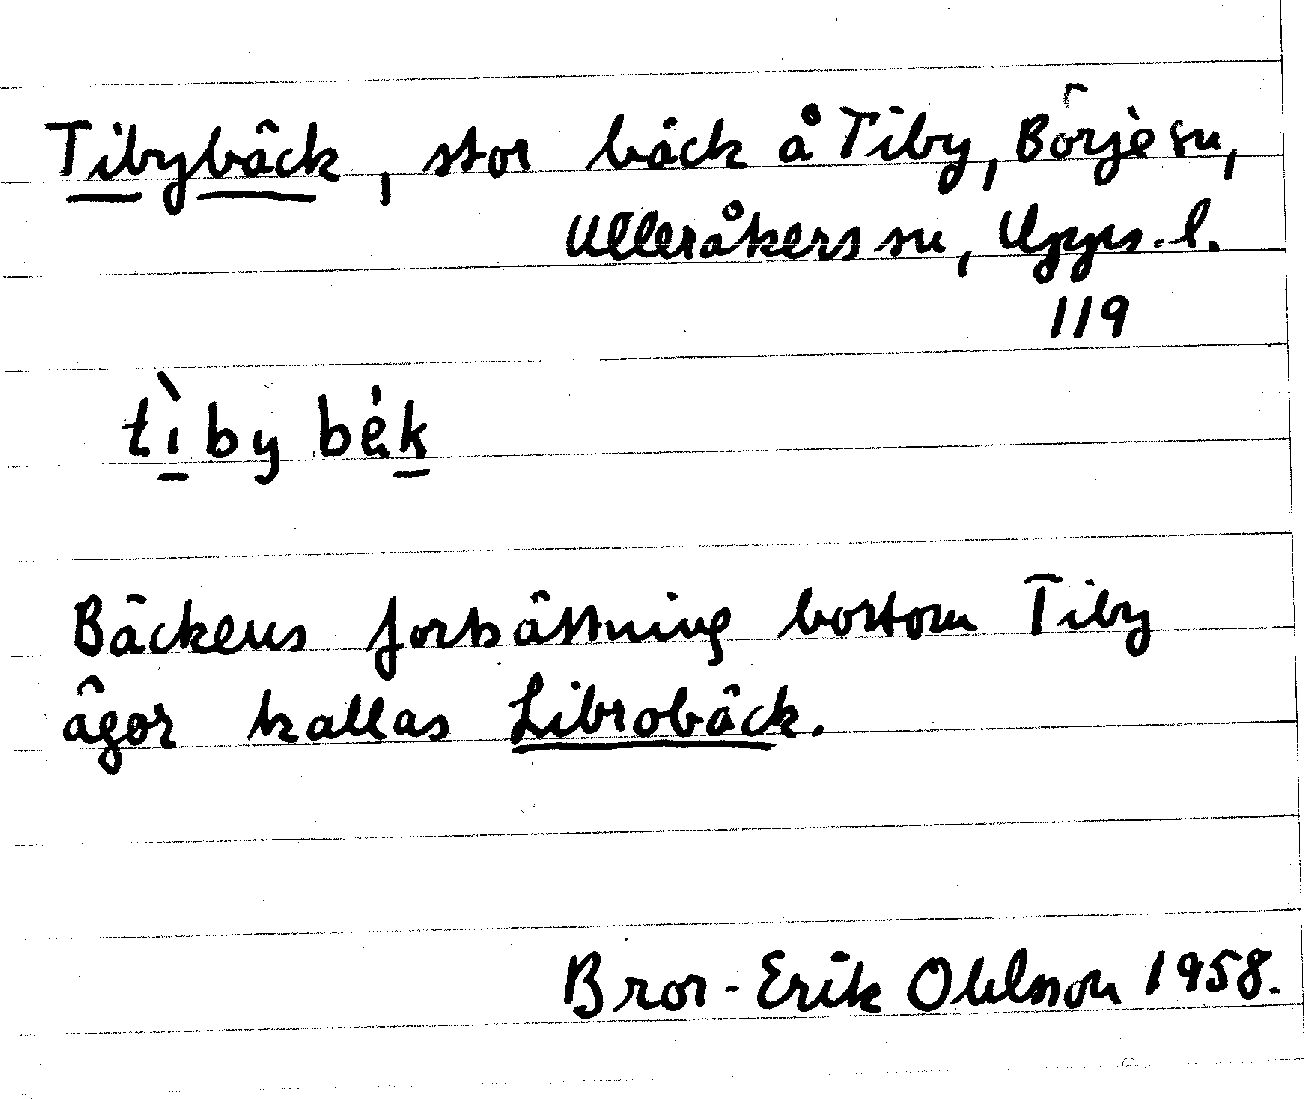 Tibybäck, stor bäck å Tiby, Börje sn,
Ulleråkers sn, Upps. l.
119
tì̱by bék̲
Bäckens fortsättning bortom Tiby
ägor kallas Librobäck.
Bror-Erik Ohlsson 1958.